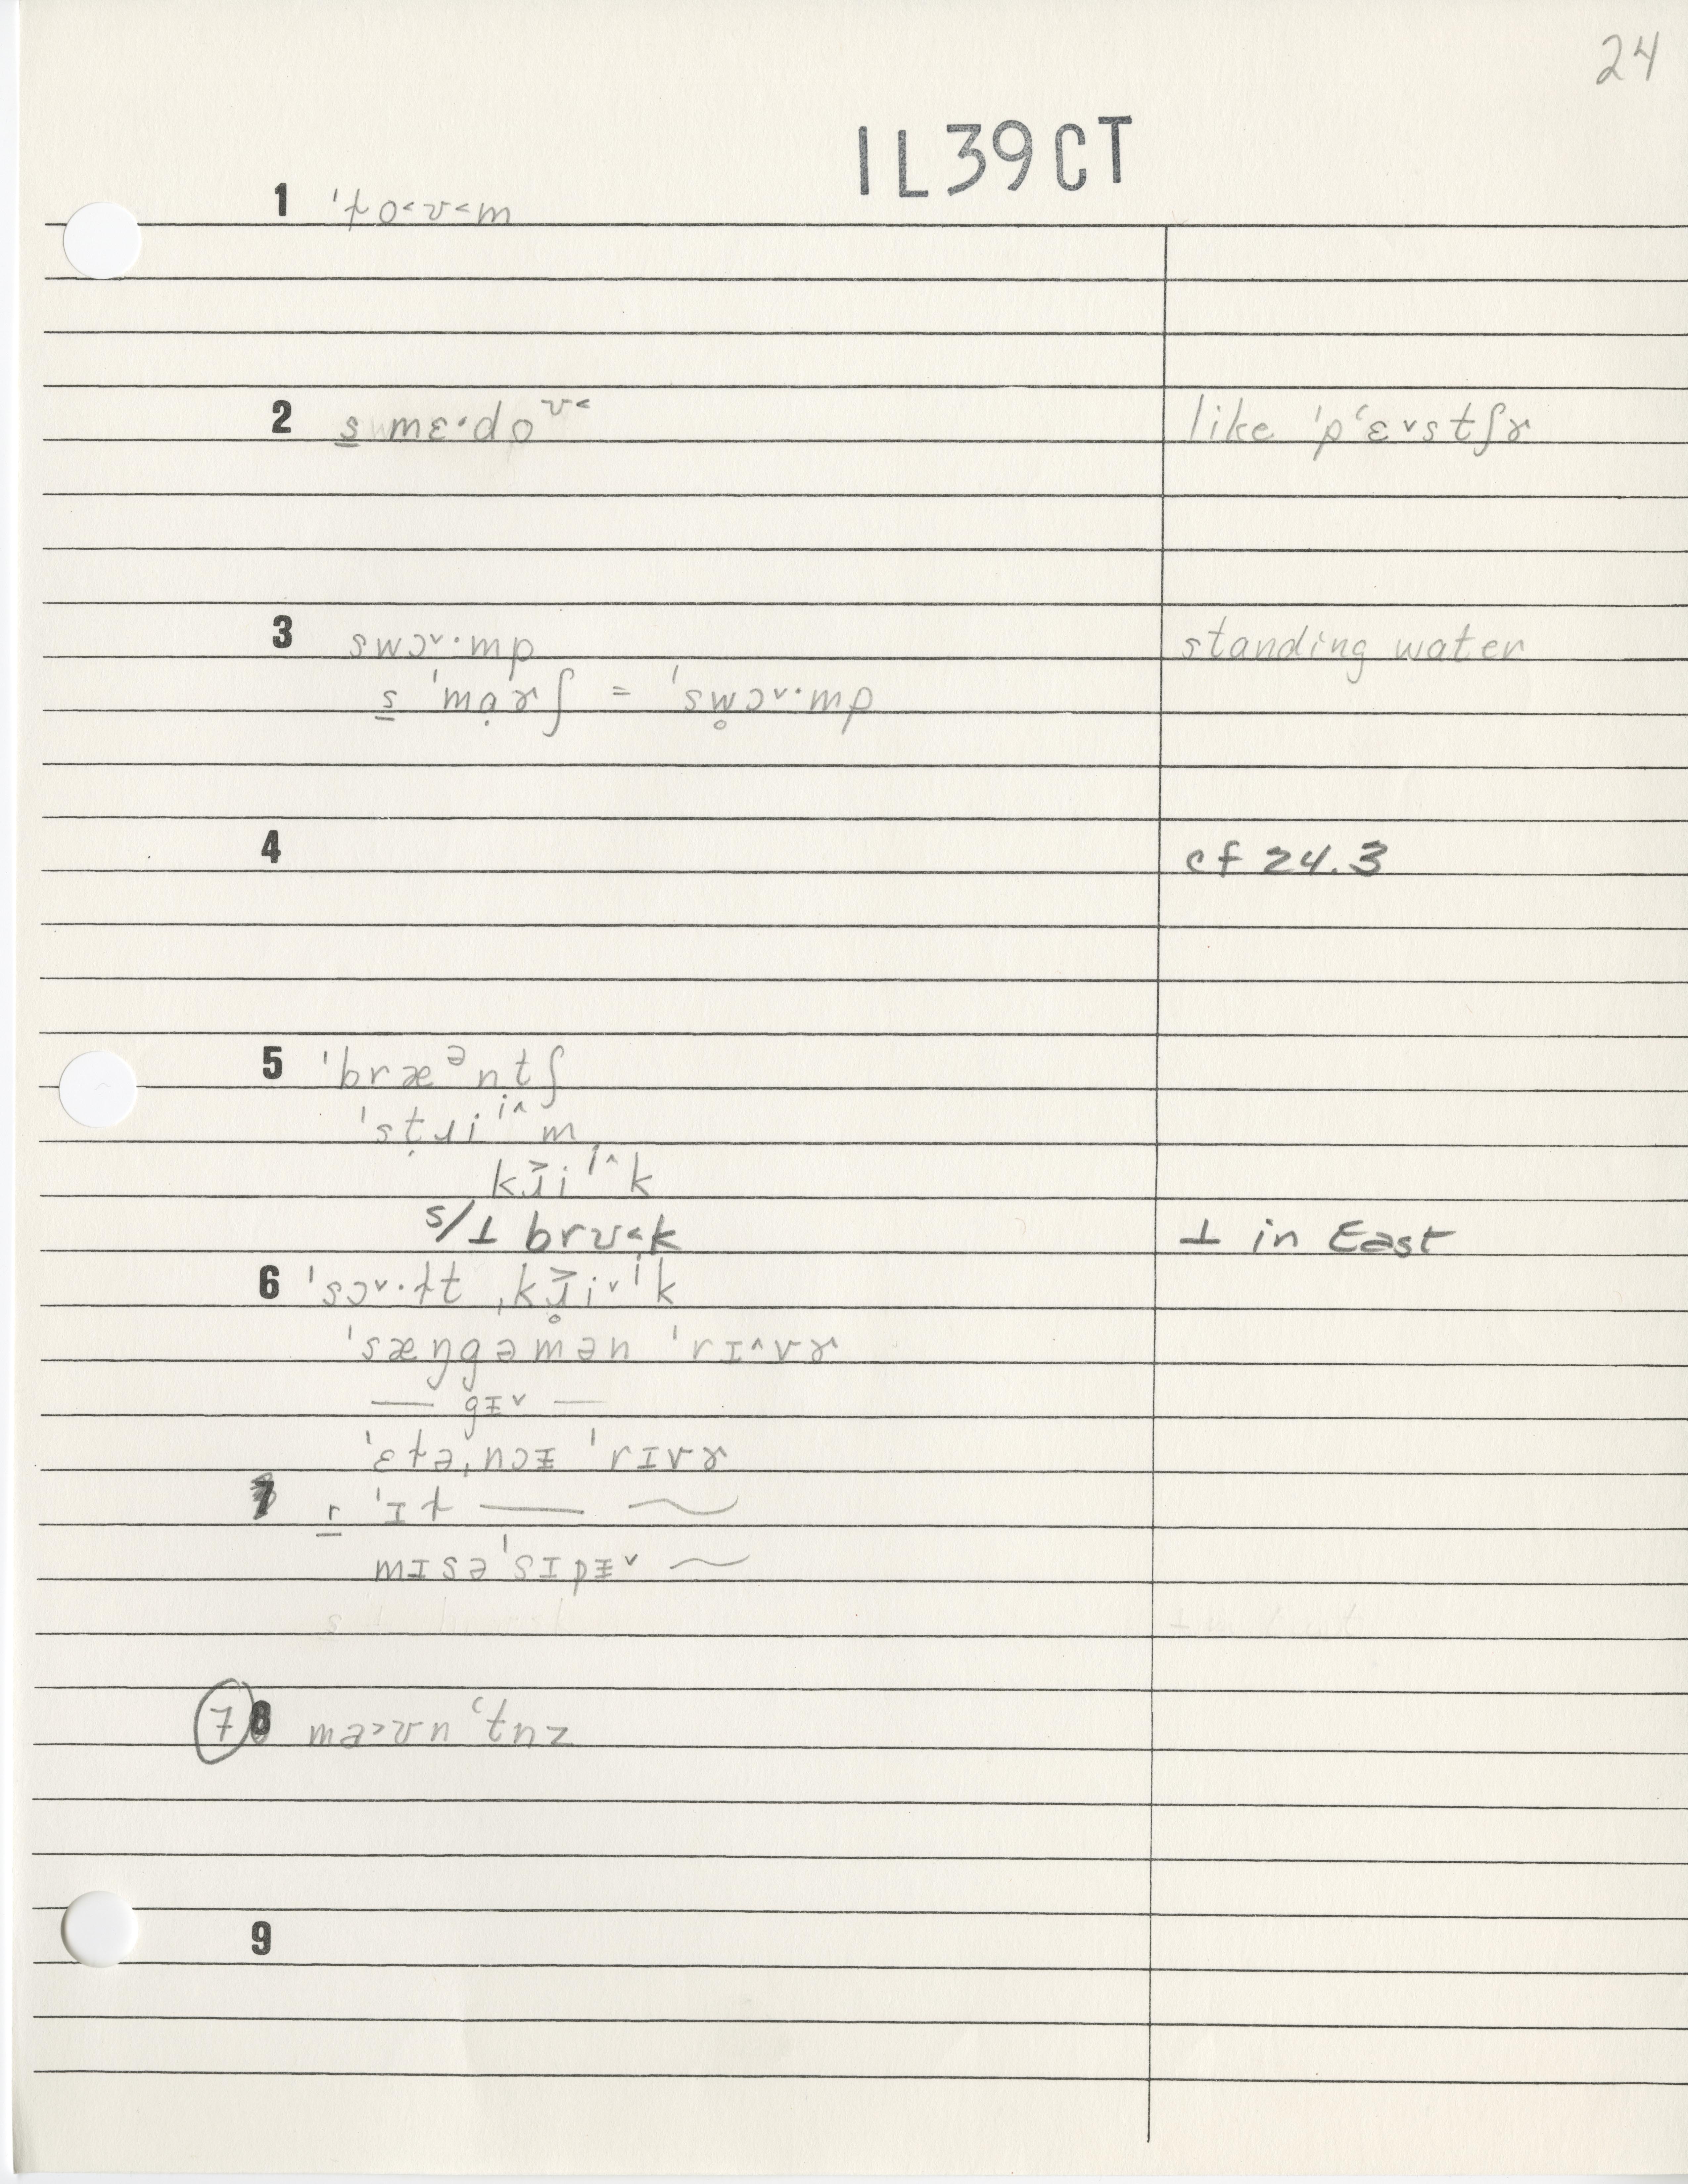 24
IL39CT
1 ˈɫo˂ʊ˂m
2 s̲ mɛ·do ʊ˂ like ˈpʻɛ˅stʃɚ
3 swɔ˅·mp standing water
s̲ ˈmạɚʃ = ˈsw̥ɔ˅·mp
4 cf 24.3
5 ˈbræᵊntʃ
ˈsṭɹiⁱ˄m
kɹ̌iⁱ˄k
s/⊥ brʊ˂k ⊥ in East
6 ˈsɔ˅·ɫt ˌkɹ̥i˅ⁱk
ˈsæŋgəmən ˈrɪ˄vɚ
— gɪ˅ —
ˈɛɫəˌnɔɪ ˈrɪvɚ
7 r̲ ˈɪɫ — ~
mɪsəˈsɪpɪ˅ ~
7 8 mə˃ʊnʻtnz
9